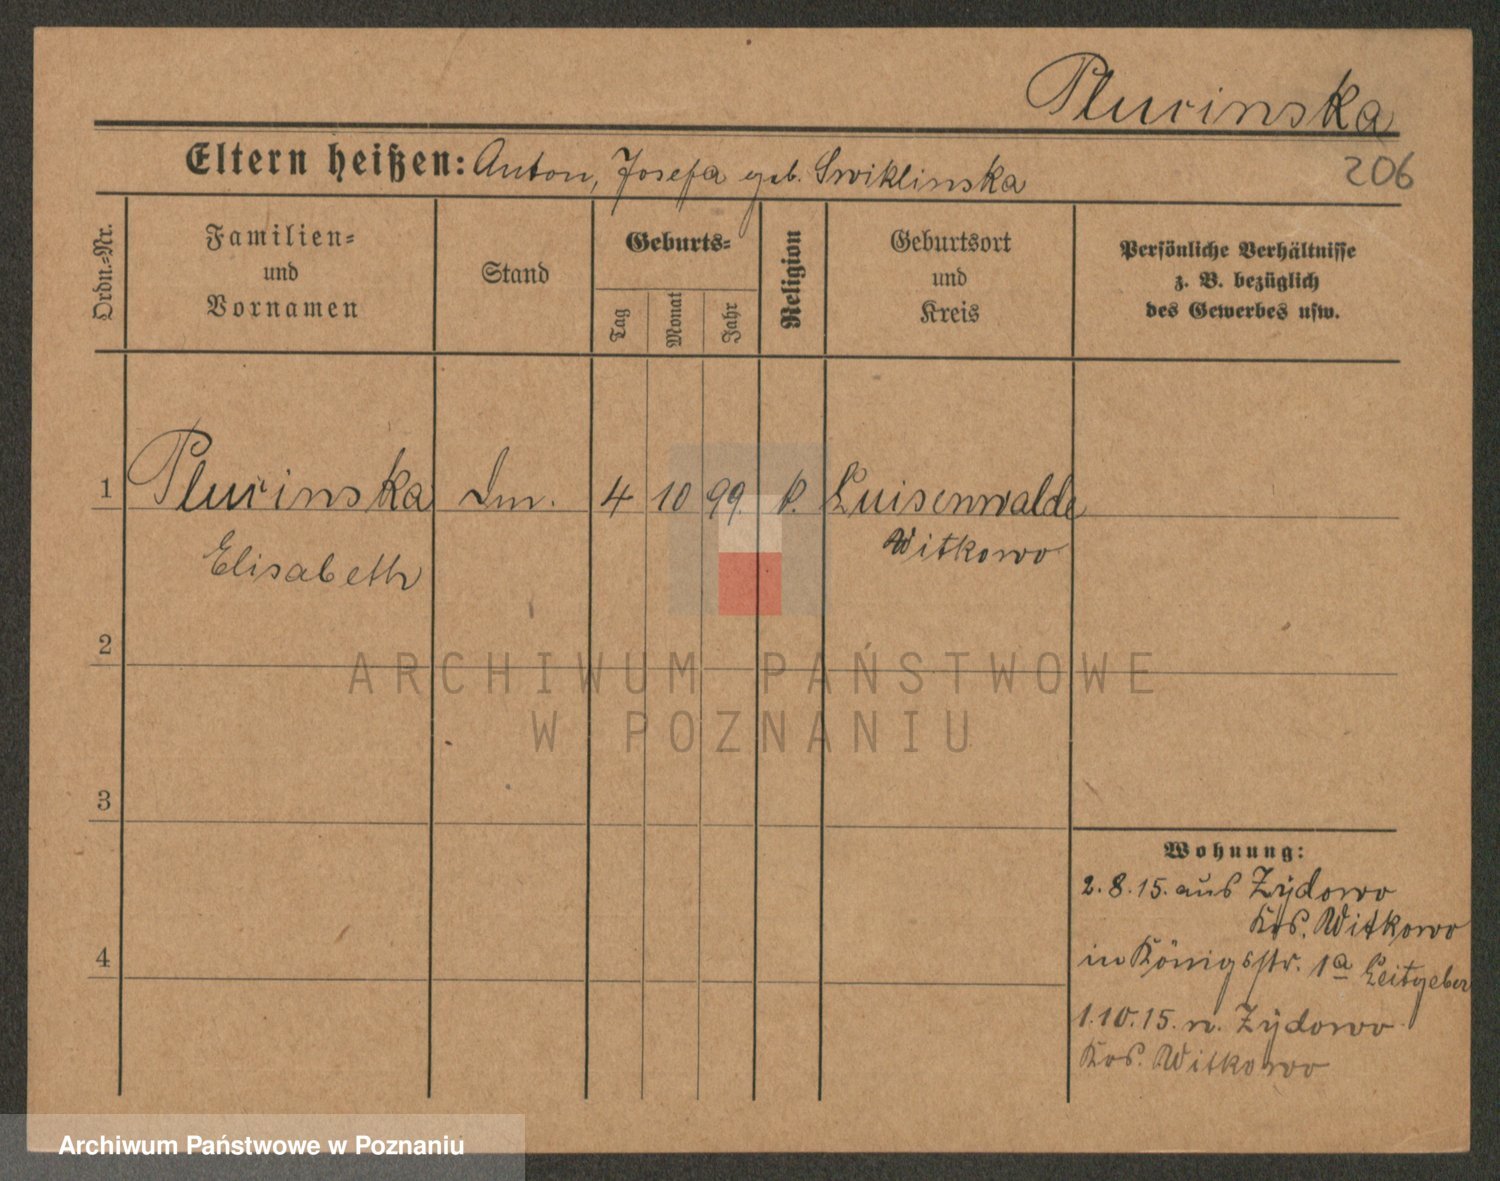 Plucinska
206
Eltern heißen: Anton, Josefa geb. Swiklinska
Ordn.=Nr.
Familien=
und
Vornamen
Stand
Geburts=
Tag
Monat
Jahr
Religion
Geburtsort
und
Kreis
Persönliche Verhältnisse
z. B. bezüglich
des Gewerbes usw.
1 Plucinska 4 10 99. k. Luisenwalde
Elisabeth Witkowo
2
3
4
Wohnung:
2.8.15. aus Zydowo
Krs. Witkowo
in Königsstr. 1a Leitgeber
1.10.15. n. Zydowo
Krs. Witkowo
ARCHIWUM PAŃSTWOWE
W POZNANIU
Archiwum Państwowe w Poznaniu